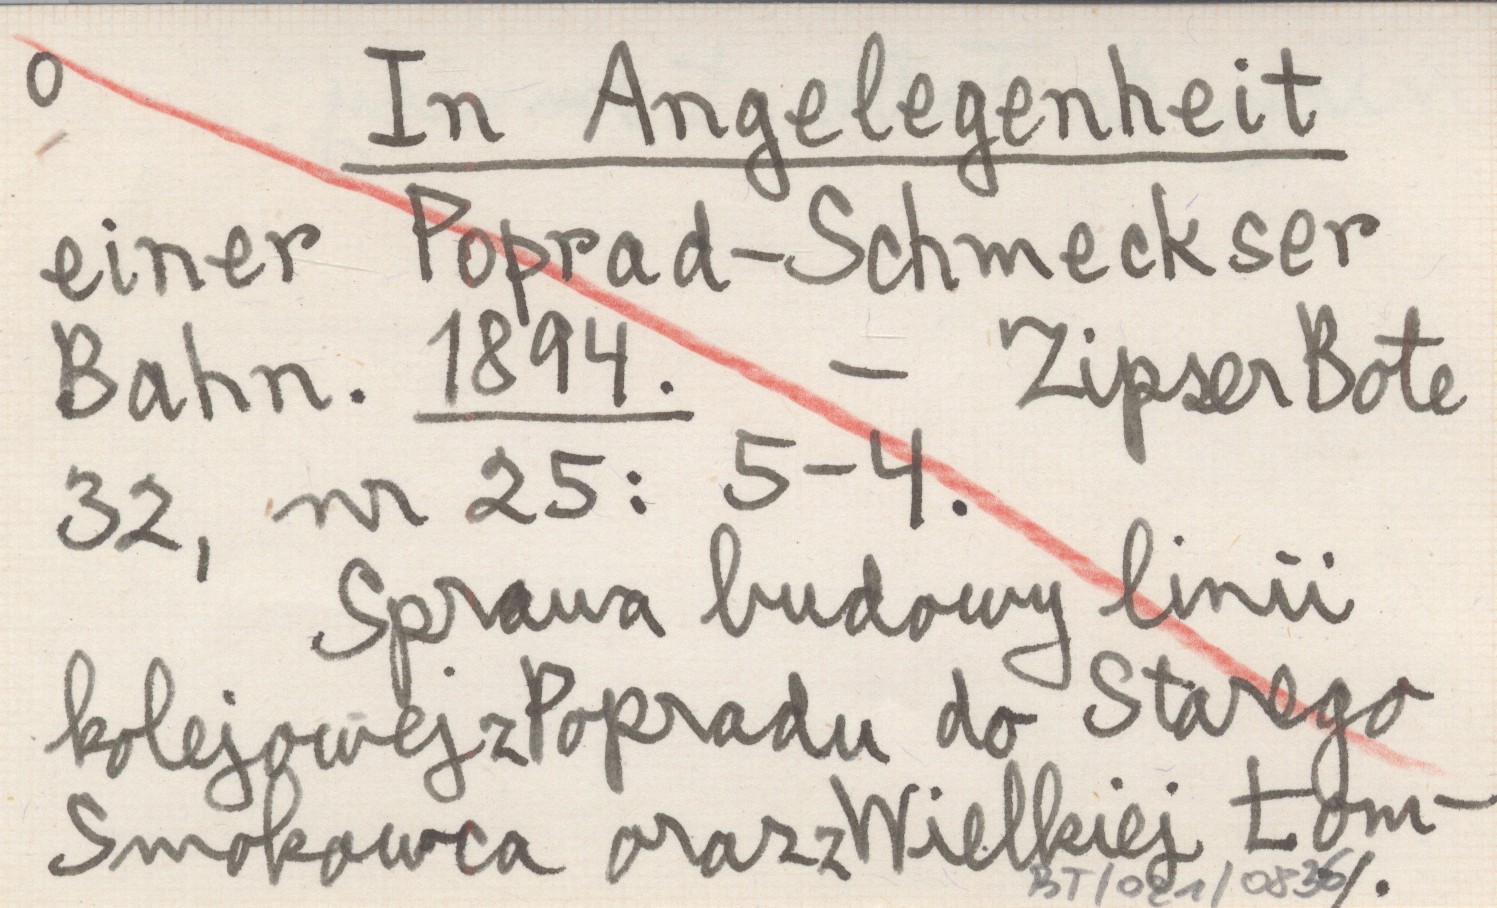 o In Angelegenheit
einer Poprad-Schmeckser
Bahn. 1894. – Zipser Bote
32, nr 25: 5-4.
Sprawa budowy linii
kolejowej z Popradu do Starego
Smokowca oraz z Wielkiej Łom-
BT/021/0836/.